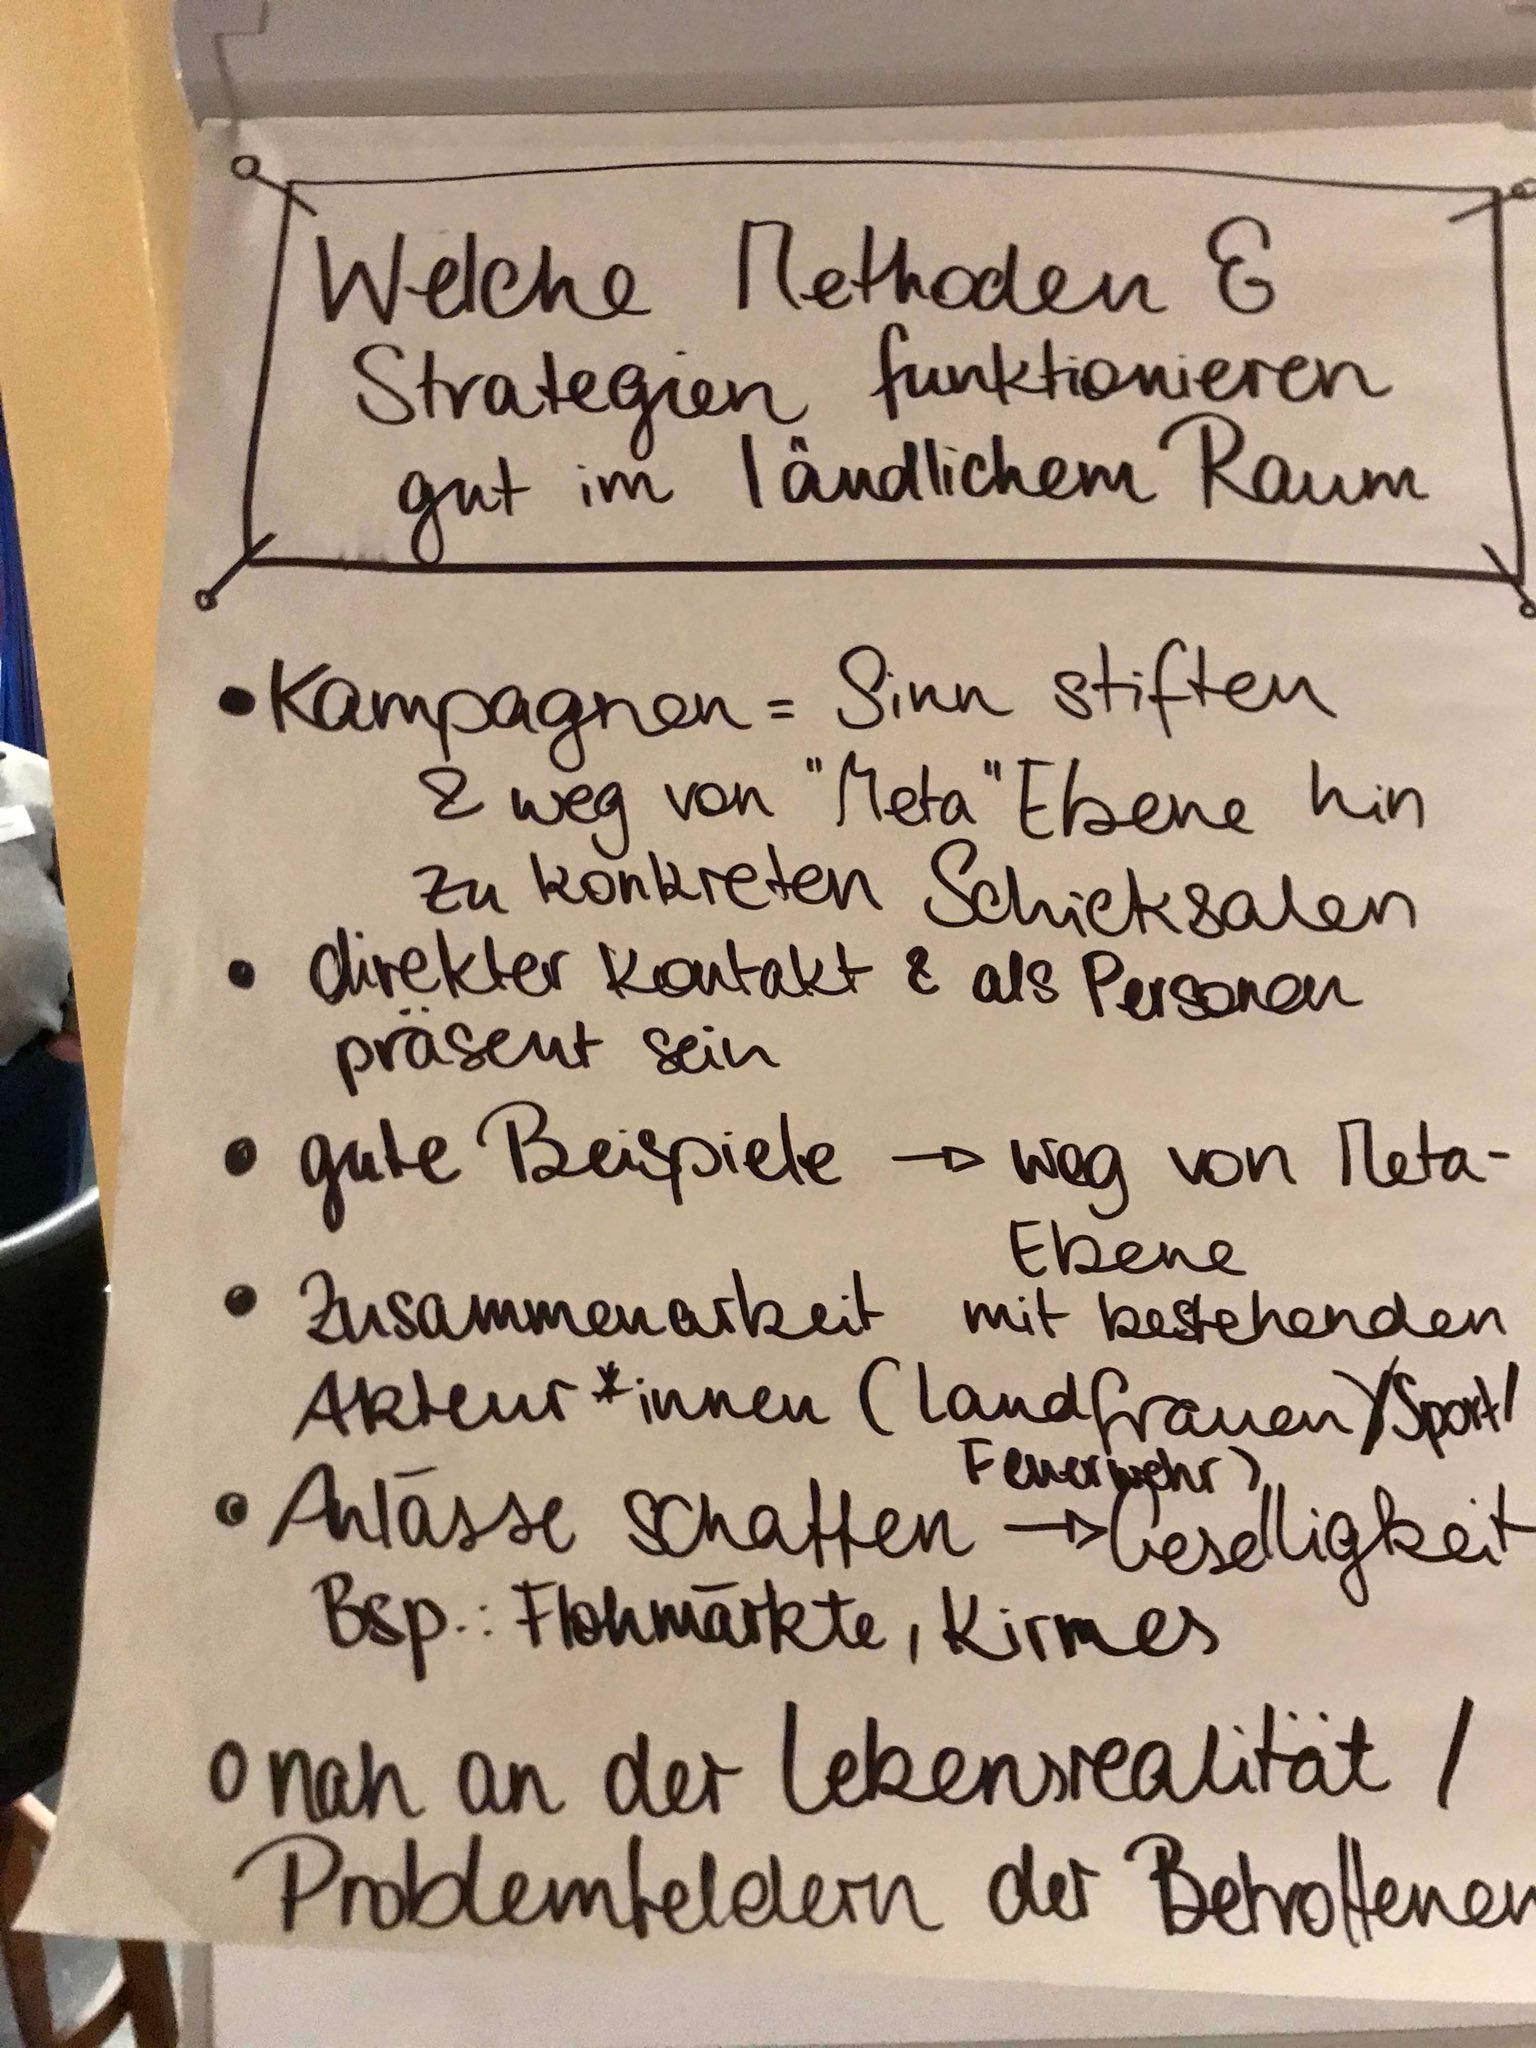 Welche Methoden &
Strategien funktionieren
gut im ländlichem Raum
• Kampagnen = Sinn stiften
& weg von "Meta" Ebene hin
zu konkreten Schicksalen
• direkter Kontakt & als Personen
präsent sein
• gute Beispiele → weg von Meta-
Ebene
• Zusammenarbeit mit bestehenden
Akteur*innen (Landfrauen)/Sport/
Feuerwehr)
• Anlässe schaffen → Geselligkeit
Bsp.: Flohmärkte, Kirmes
o nah an der Lebensrealität /
Problemfeldern der Betroffenen